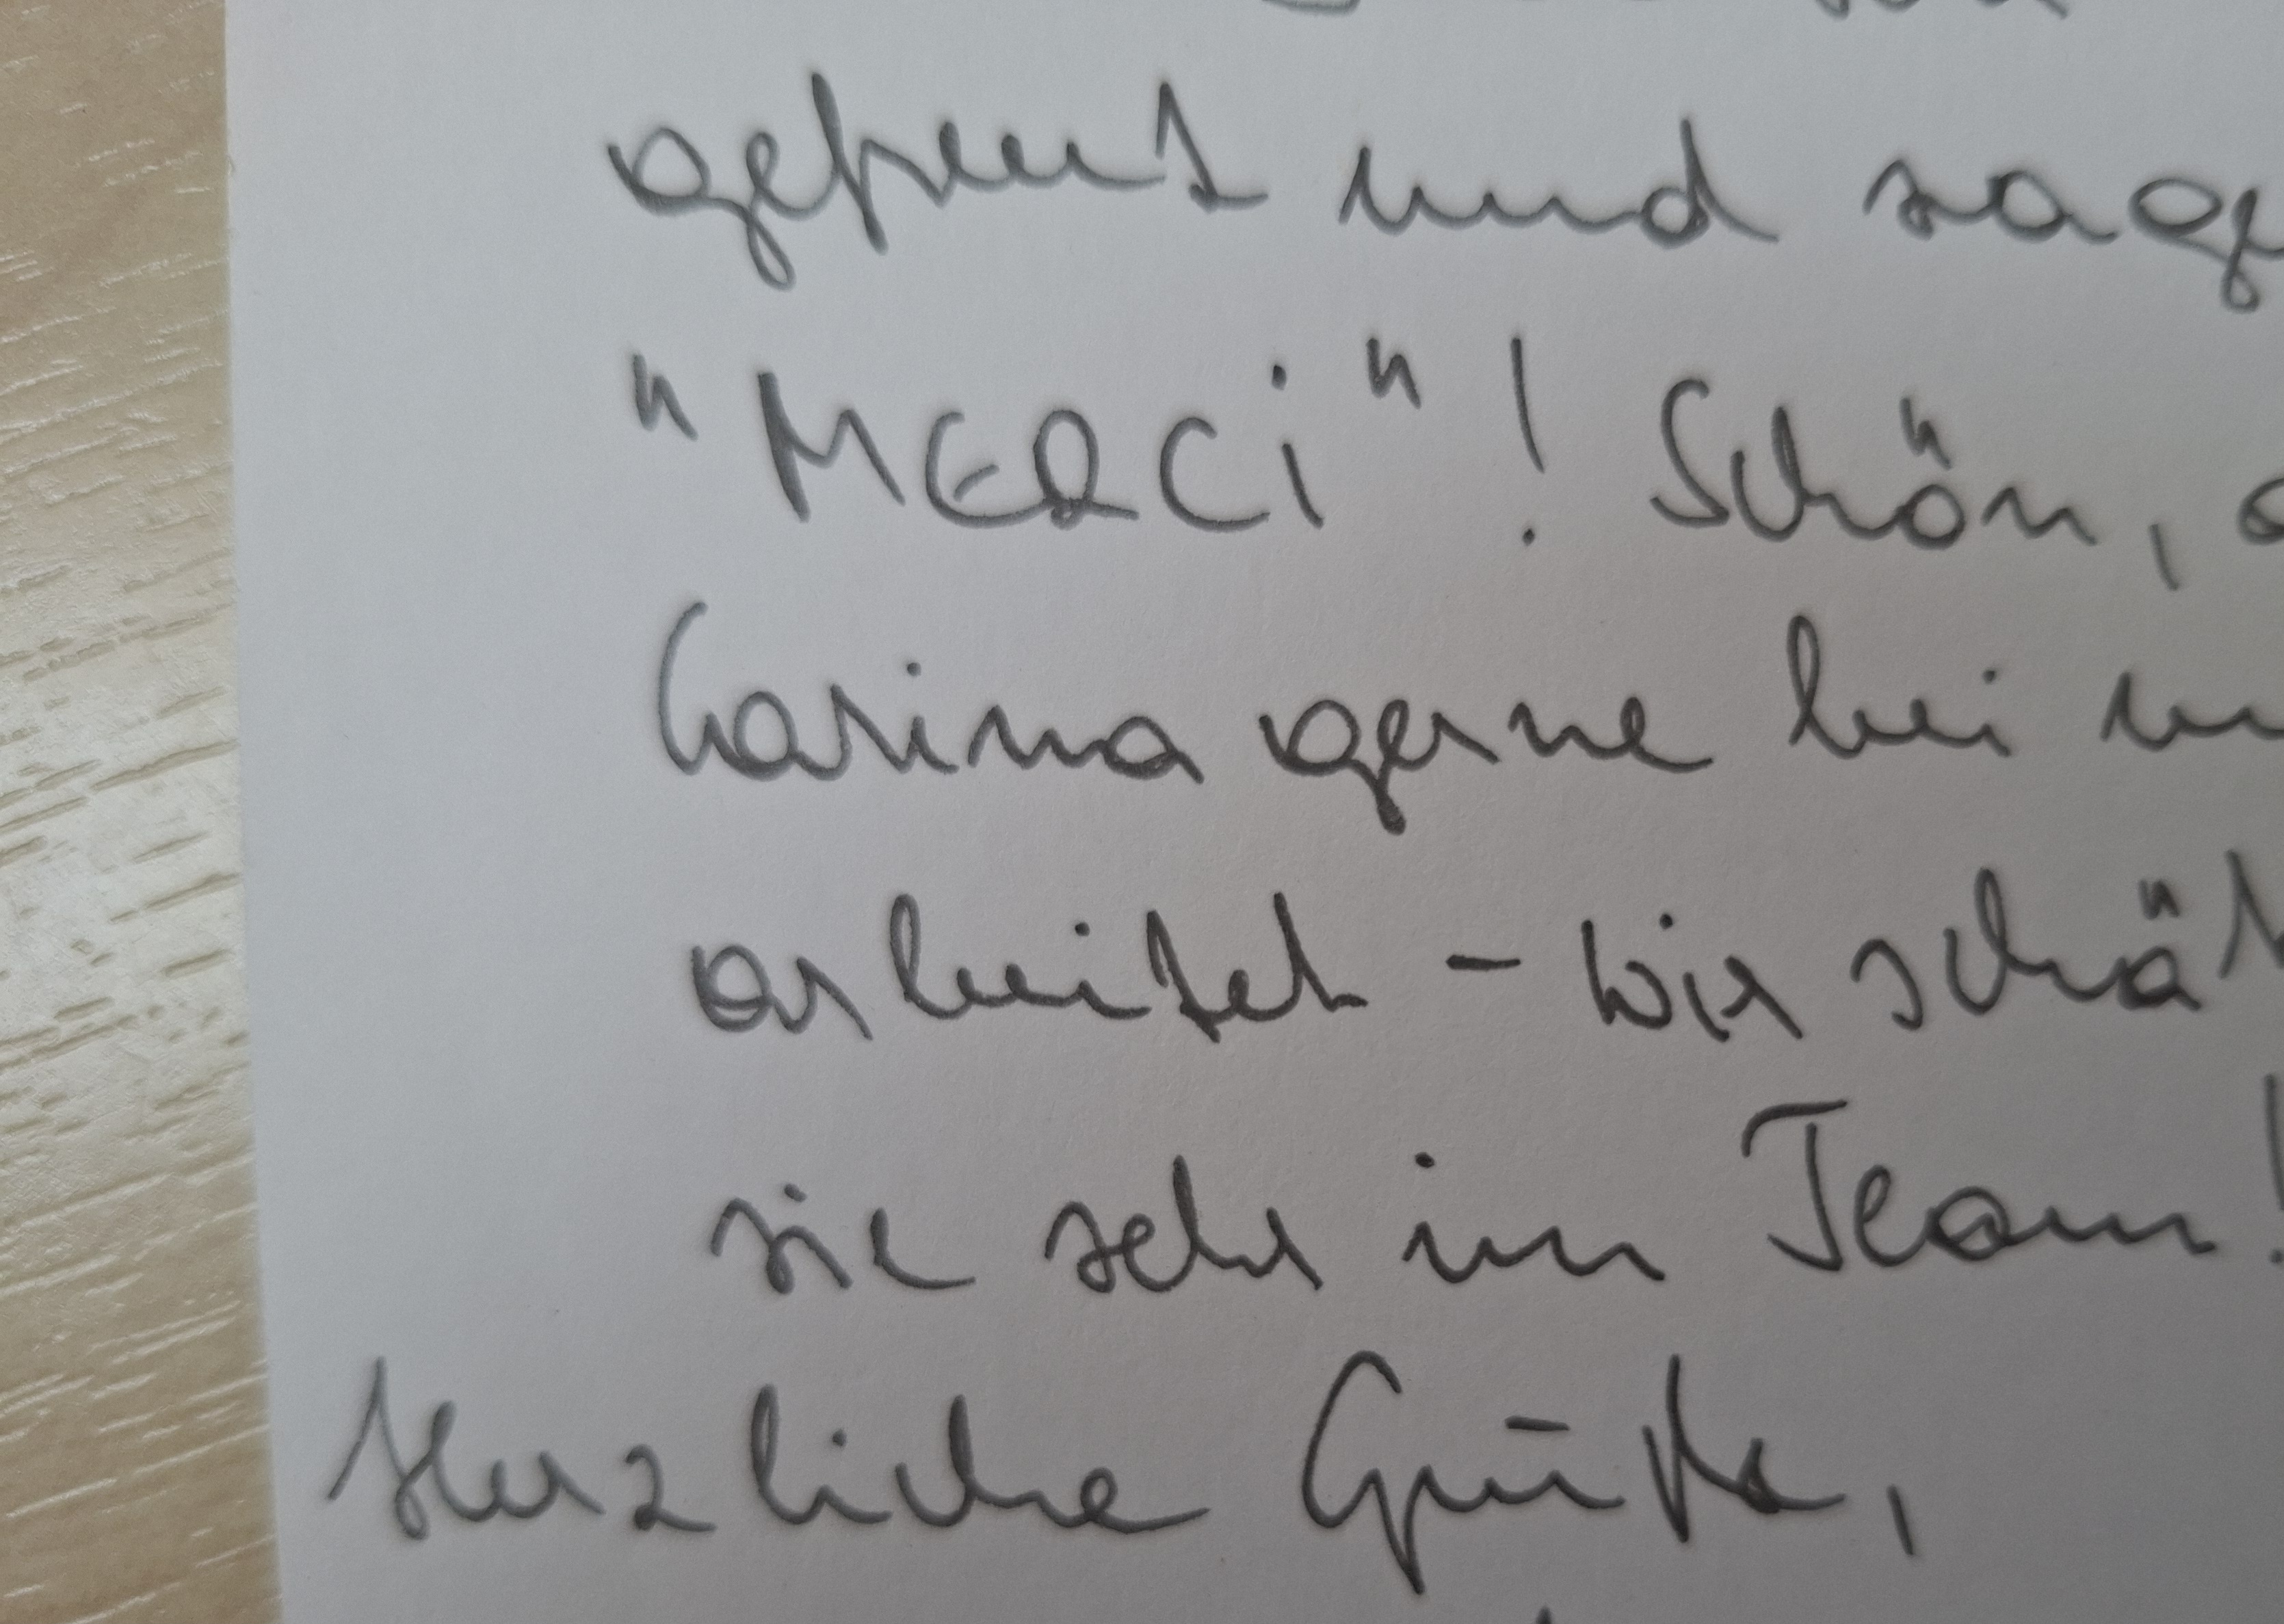 gefreut und sage
"MERCi"! Schön,
Carina gerne bei
arbeitet - wir schät
sie sehr im Team!
Herzliche Grüße,